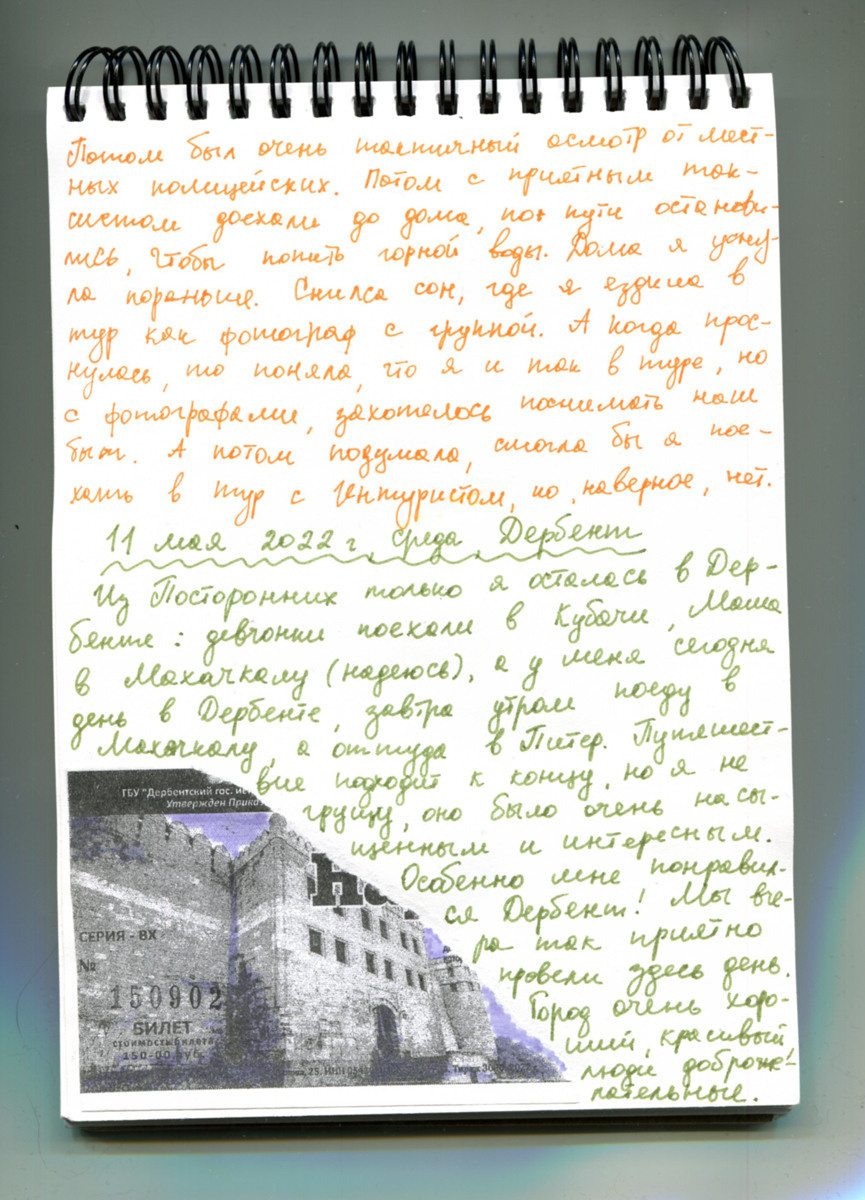 Потом был очень тактичный осмотр от мест-
ных полицейских. Потом с приятным так-
систом доехали до дома, по пути останови-
лись, чтобы попить горной воды. Дома я усну-
ла пораньше. Снился сон, где я ездила в
тур как фотограф с группой. А когда прос-
нулась, то поняла, что я и так в туре, но
с фотографами, захотелось поснимать наш
быт. А потом подумала, смогла бы я пое-
хать в тур с Интуристом, но, наверное, нет.
11 мая 2022 г, среда, Дербент
Из Посторонних только я осталась в Дер-
бенте: девчонки поехали в Кубачи, Маша
в Махачкалу (надеюсь), а у меня сегодня
день в Дербенте, завтра утром поеду в
Махачкалу, а оттуда в Питер. Путешест-
вие подходит к концу, но я не
грущу, оно было очень насы-
щенным и интересным.
Особенно мне понравил-
ся Дербент! Мы вче-
ра так приятно
провели здесь день.
Город очень хоро-
ший, красивый
люди доброже-
лательные.
ГБУ "Дербентский гос. ис
Утвержден Прика
На
СЕРИЯ - ВХ
№
150902
БИЛЕТ
стоимость билета
150-00 руб.